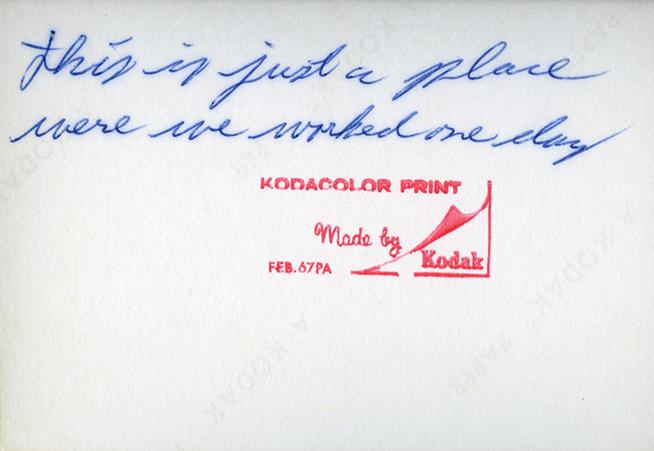 This is just a place
were we worked one day
KODACOLOR PRINT
Made by
Kodak
FEB. 67PA
A KODAK PAPER